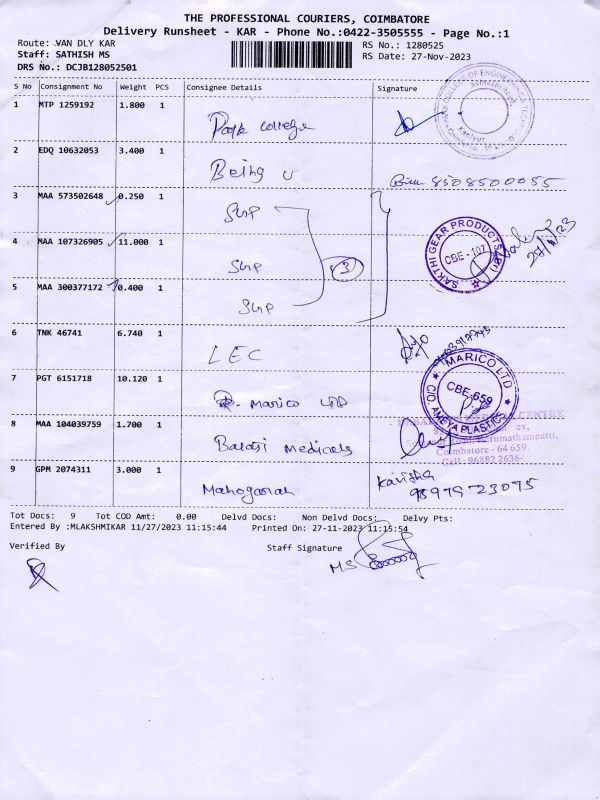 THE PROFESSIONAL COURIERS, COIMBATORE
Delivery Runsheet - KAR - Phone No.:0422-3505555 - Page No.:1
Route: VAN DLY KAR
RS No.: 1280525
Staff: SATHISH MS
RS Date: 27-Nov-2023
DRS No.: DCJB128052501
S No Consignment No Weight PCS Consignee Details Signature
1 MTP 1259192 1.800 1 Park college
2 EDQ 10632053 3.400 1 Being u 8508500055
3 MAA 573502648 0.250 1 SGP
4 MAA 107326905 11.000 1 SGP 3
SAKTHI GEAR PRODUCTS
CBE - 102
5 MAA 300377172 0.400 1 SGP
6 TNK 46741 6.740 1 LEC
7 PGT 6151718 10.120 1 Marico LTD
MARICO LTD
CBE-659
C/O. AMEYA PLASTICS
8 MAA 104039759 1.700 1 Balaji Medicals
CENTRE
Karumathampatti,
Coimbatore - 641 659.
Cell : 96882 2636
9 GPM 2074311 3.000 1 Mahogarah Kavisha
Tot Docs: 9 Tot COD Amt: 0.00 Delvd Docs: Non Delvd Docs: Delvy Pts:
Entered By :MLAKSHMIKAR 11/27/2023 11:15:44 Printed On: 27-11-2023 11:15:54
Verified By Staff Signature
MS